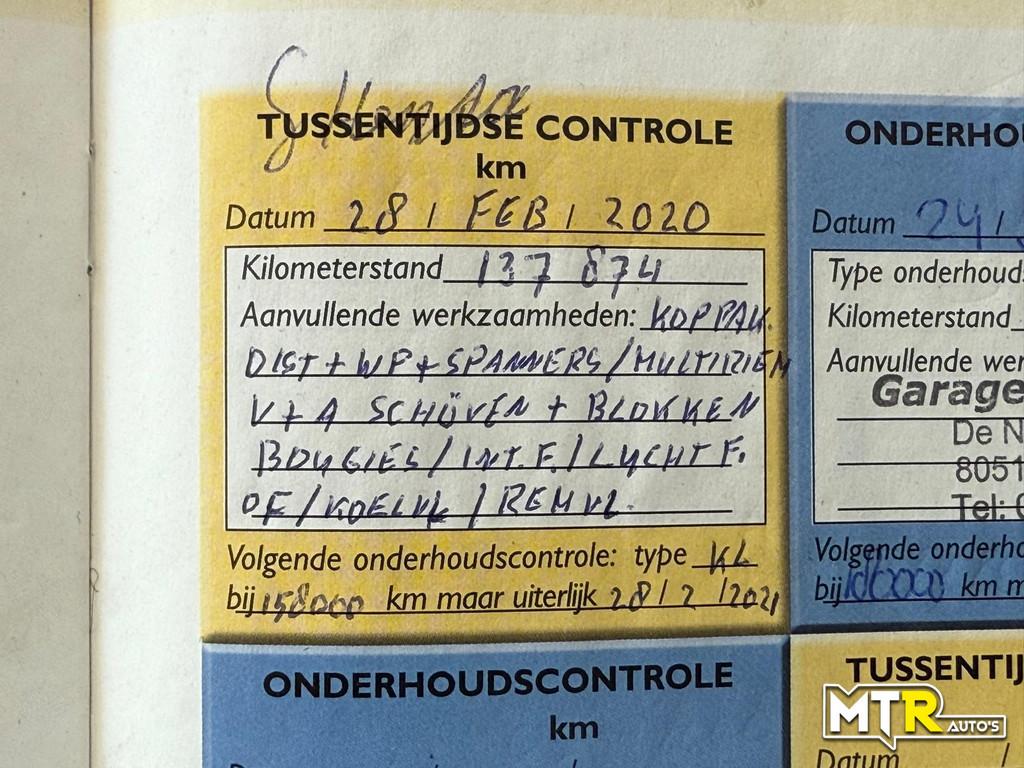 TUSSENTIJDSE CONTROLE
km
Datum 28 / FEB / 2020
Kilometerstand 137 874
Aanvullende werkzaamheden: KOPPAK.
DIST + WP + SPANNERS / MULTIRIEM
V + A SCHÜVEN + BLOKKEN
BOUGIES / INT.F. / LUCHT F.
OF / KOELVL / REMVL.
Volgende onderhoudscontrole: type KL
bij 158000 km maar uiterlijk 28 / 2 / 2021
ONDERHOUDSCONTROLE
km
ONDERHO
Datum 24 /
Type onderhoud:
Kilometerstand
Aanvullende wer
Garage
De N
8051
Tel: 0
Volgende onderho
bij km m
TUSSENTIJ
Datum /
MTR AUTO'S